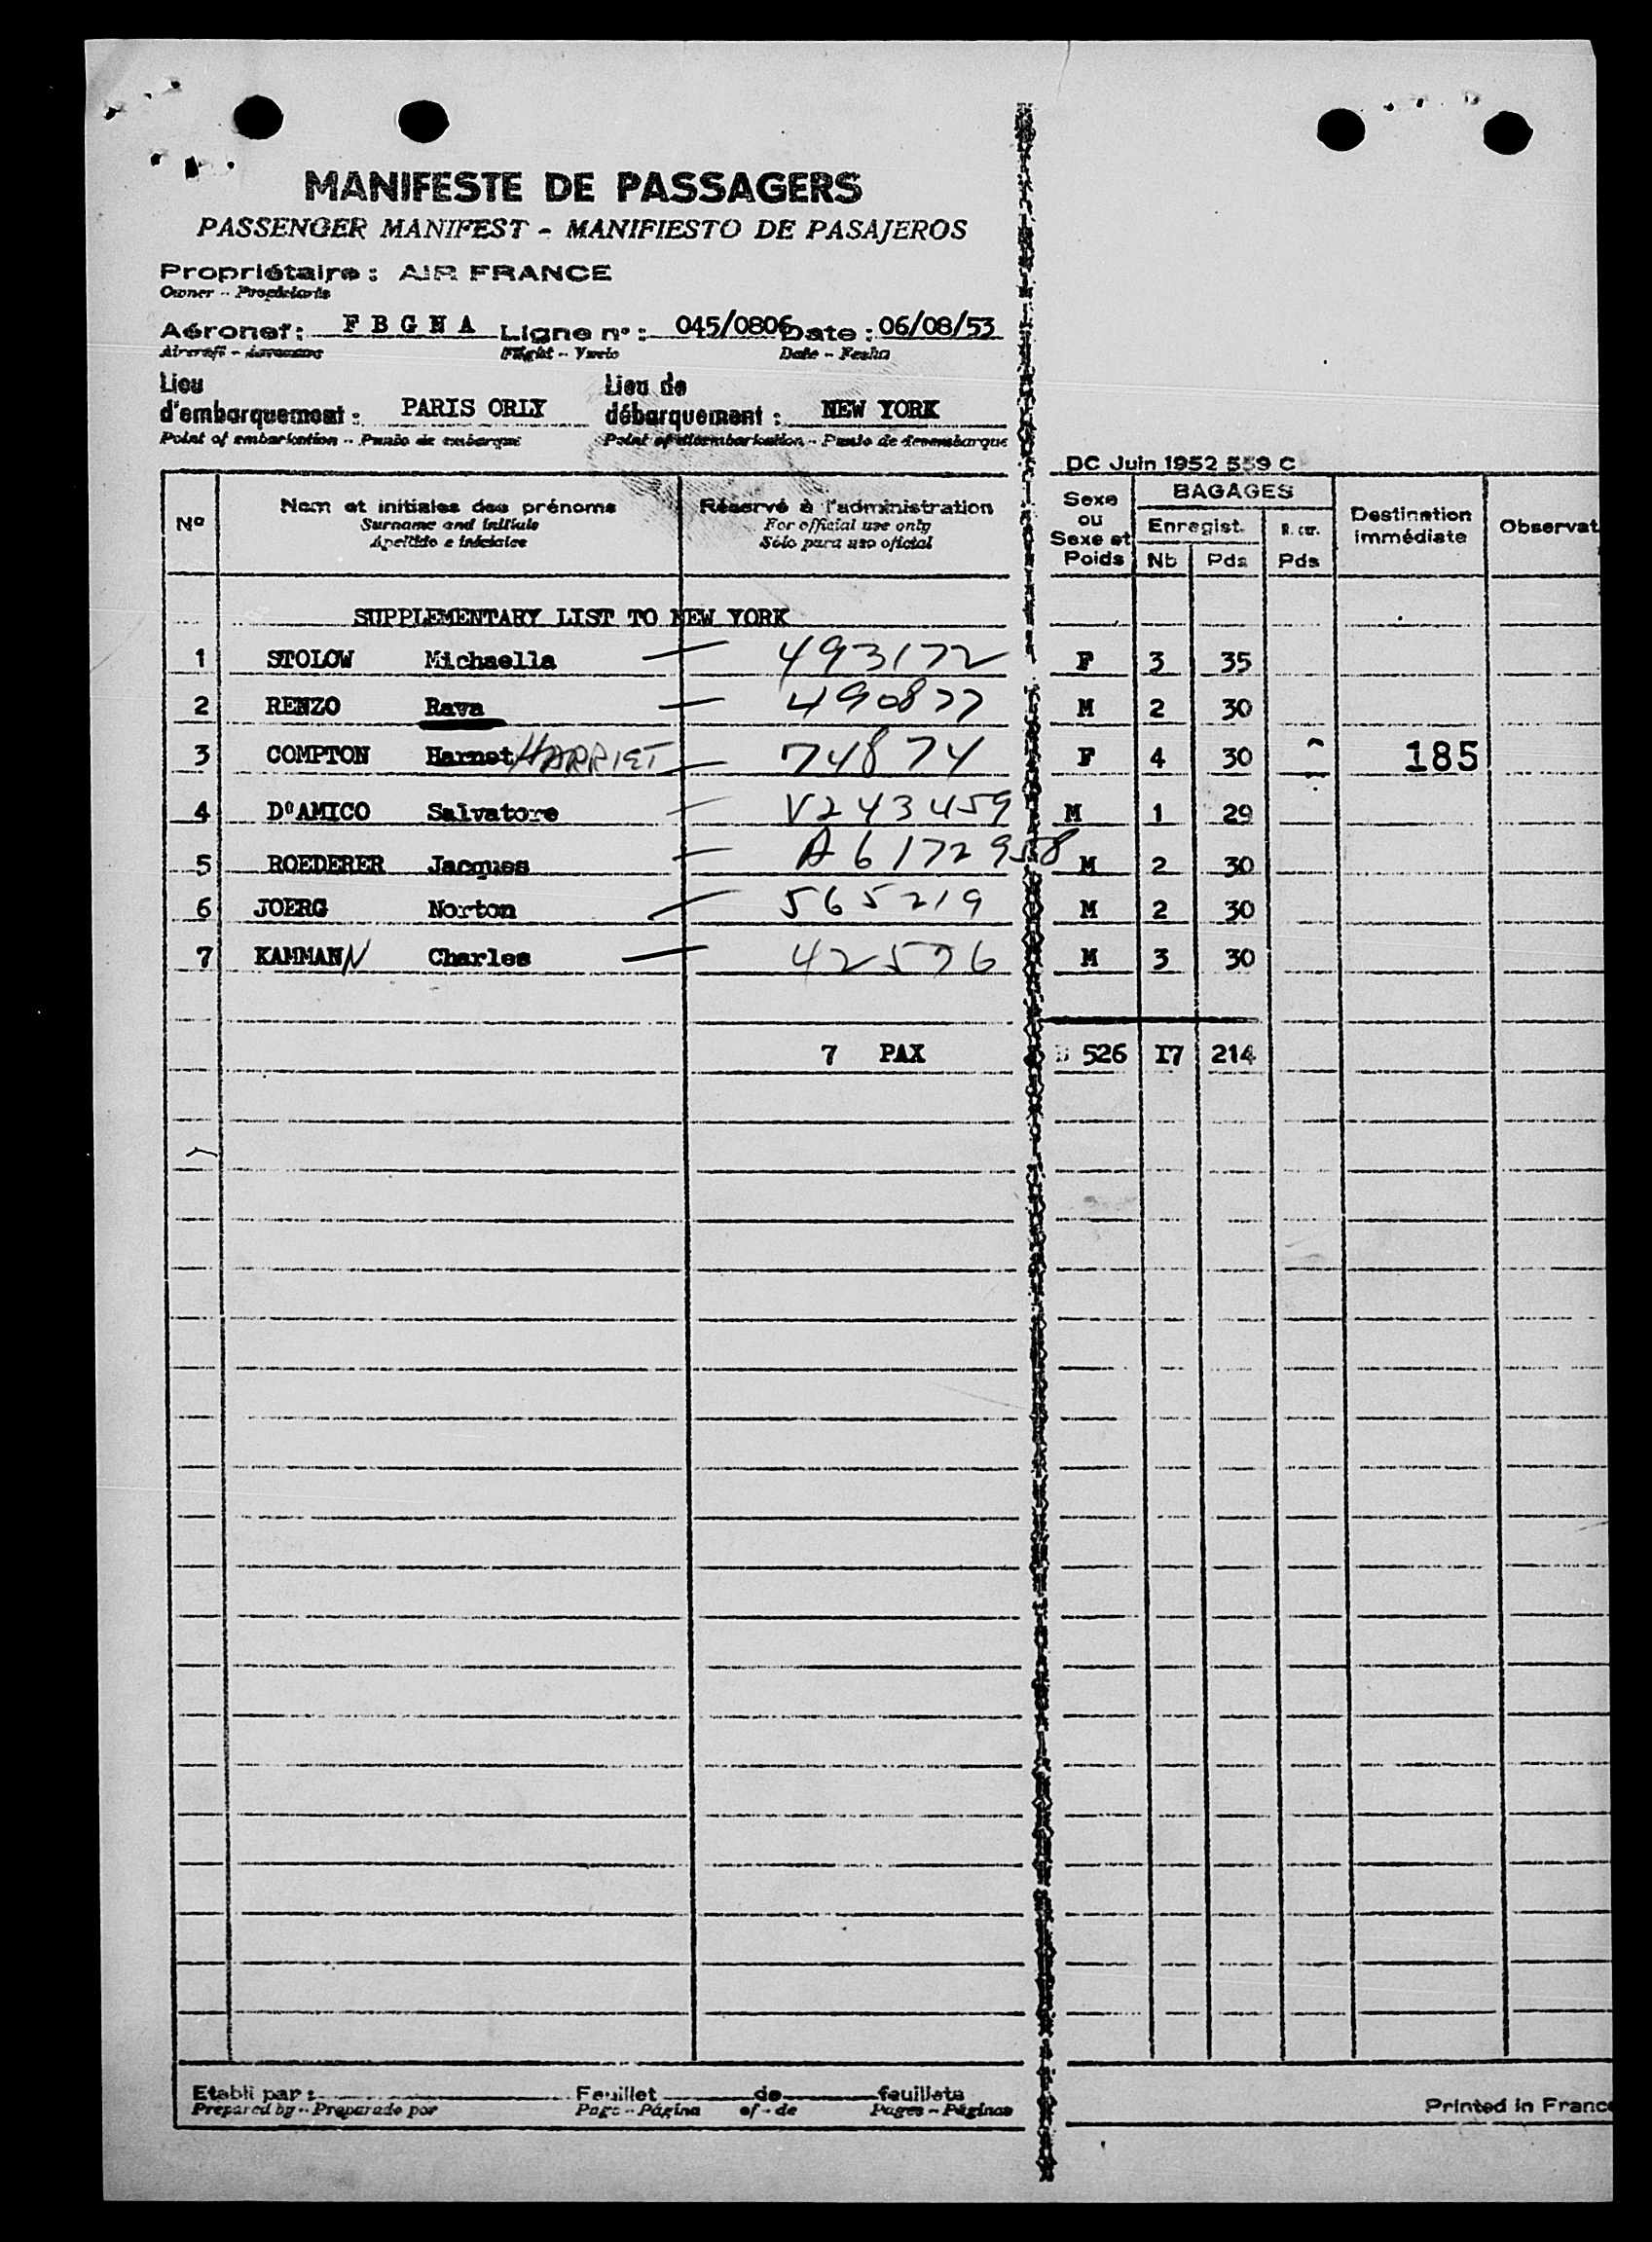 MANIFESTE DE PASSAGERS
PASSENGER MANIFEST - MANIFIESTO DE PASAJEROS
Propriétaire : AIR FRANCE
Owner - Propietario
Aéronef : F B G N A Ligne n° : 045/0806 Date : 06/08/53
Aircraft - Flight - Vuelo Date - Fecha
Lieu d'embarquement : PARIS ORLY Lieu de débarquement : NEW YORK
Point of embarkation - Punto de embarque Point of disembarkation - Punto de desembarque
DC Juin 1952 559 C
N° Nom et initiales des prénoms Réservé à l'administration Sexe ou Sexe et Poids BAGAGES Destination immédiate Observat
Surname and initials For official use only Enregist. R. car.
Apellido e iniciales Sólo para uso oficial Nb Pds Pds
SUPPLEMENTARY LIST TO NEW YORK
1 STOLOW Michaella — 493172 F 3 35
2 RENZO Rava — 490877 M 2 30
3 COMPTON Harnet HARRIET — 74874 F 4 30 185
4 D'AMICO Salvatore — V243459 M 1 29
5 ROEDERER Jacques — A6172958 M 2 30
6 JOERG Norton — 565219 M 2 30
7 KAMMANN Charles — 42576 M 3 30
7 PAX 526 I7 214
Etabli par : Feuillet de feuillets
Prepared by - Preparado por Page - Página of - de Pages - Páginas
Printed in France